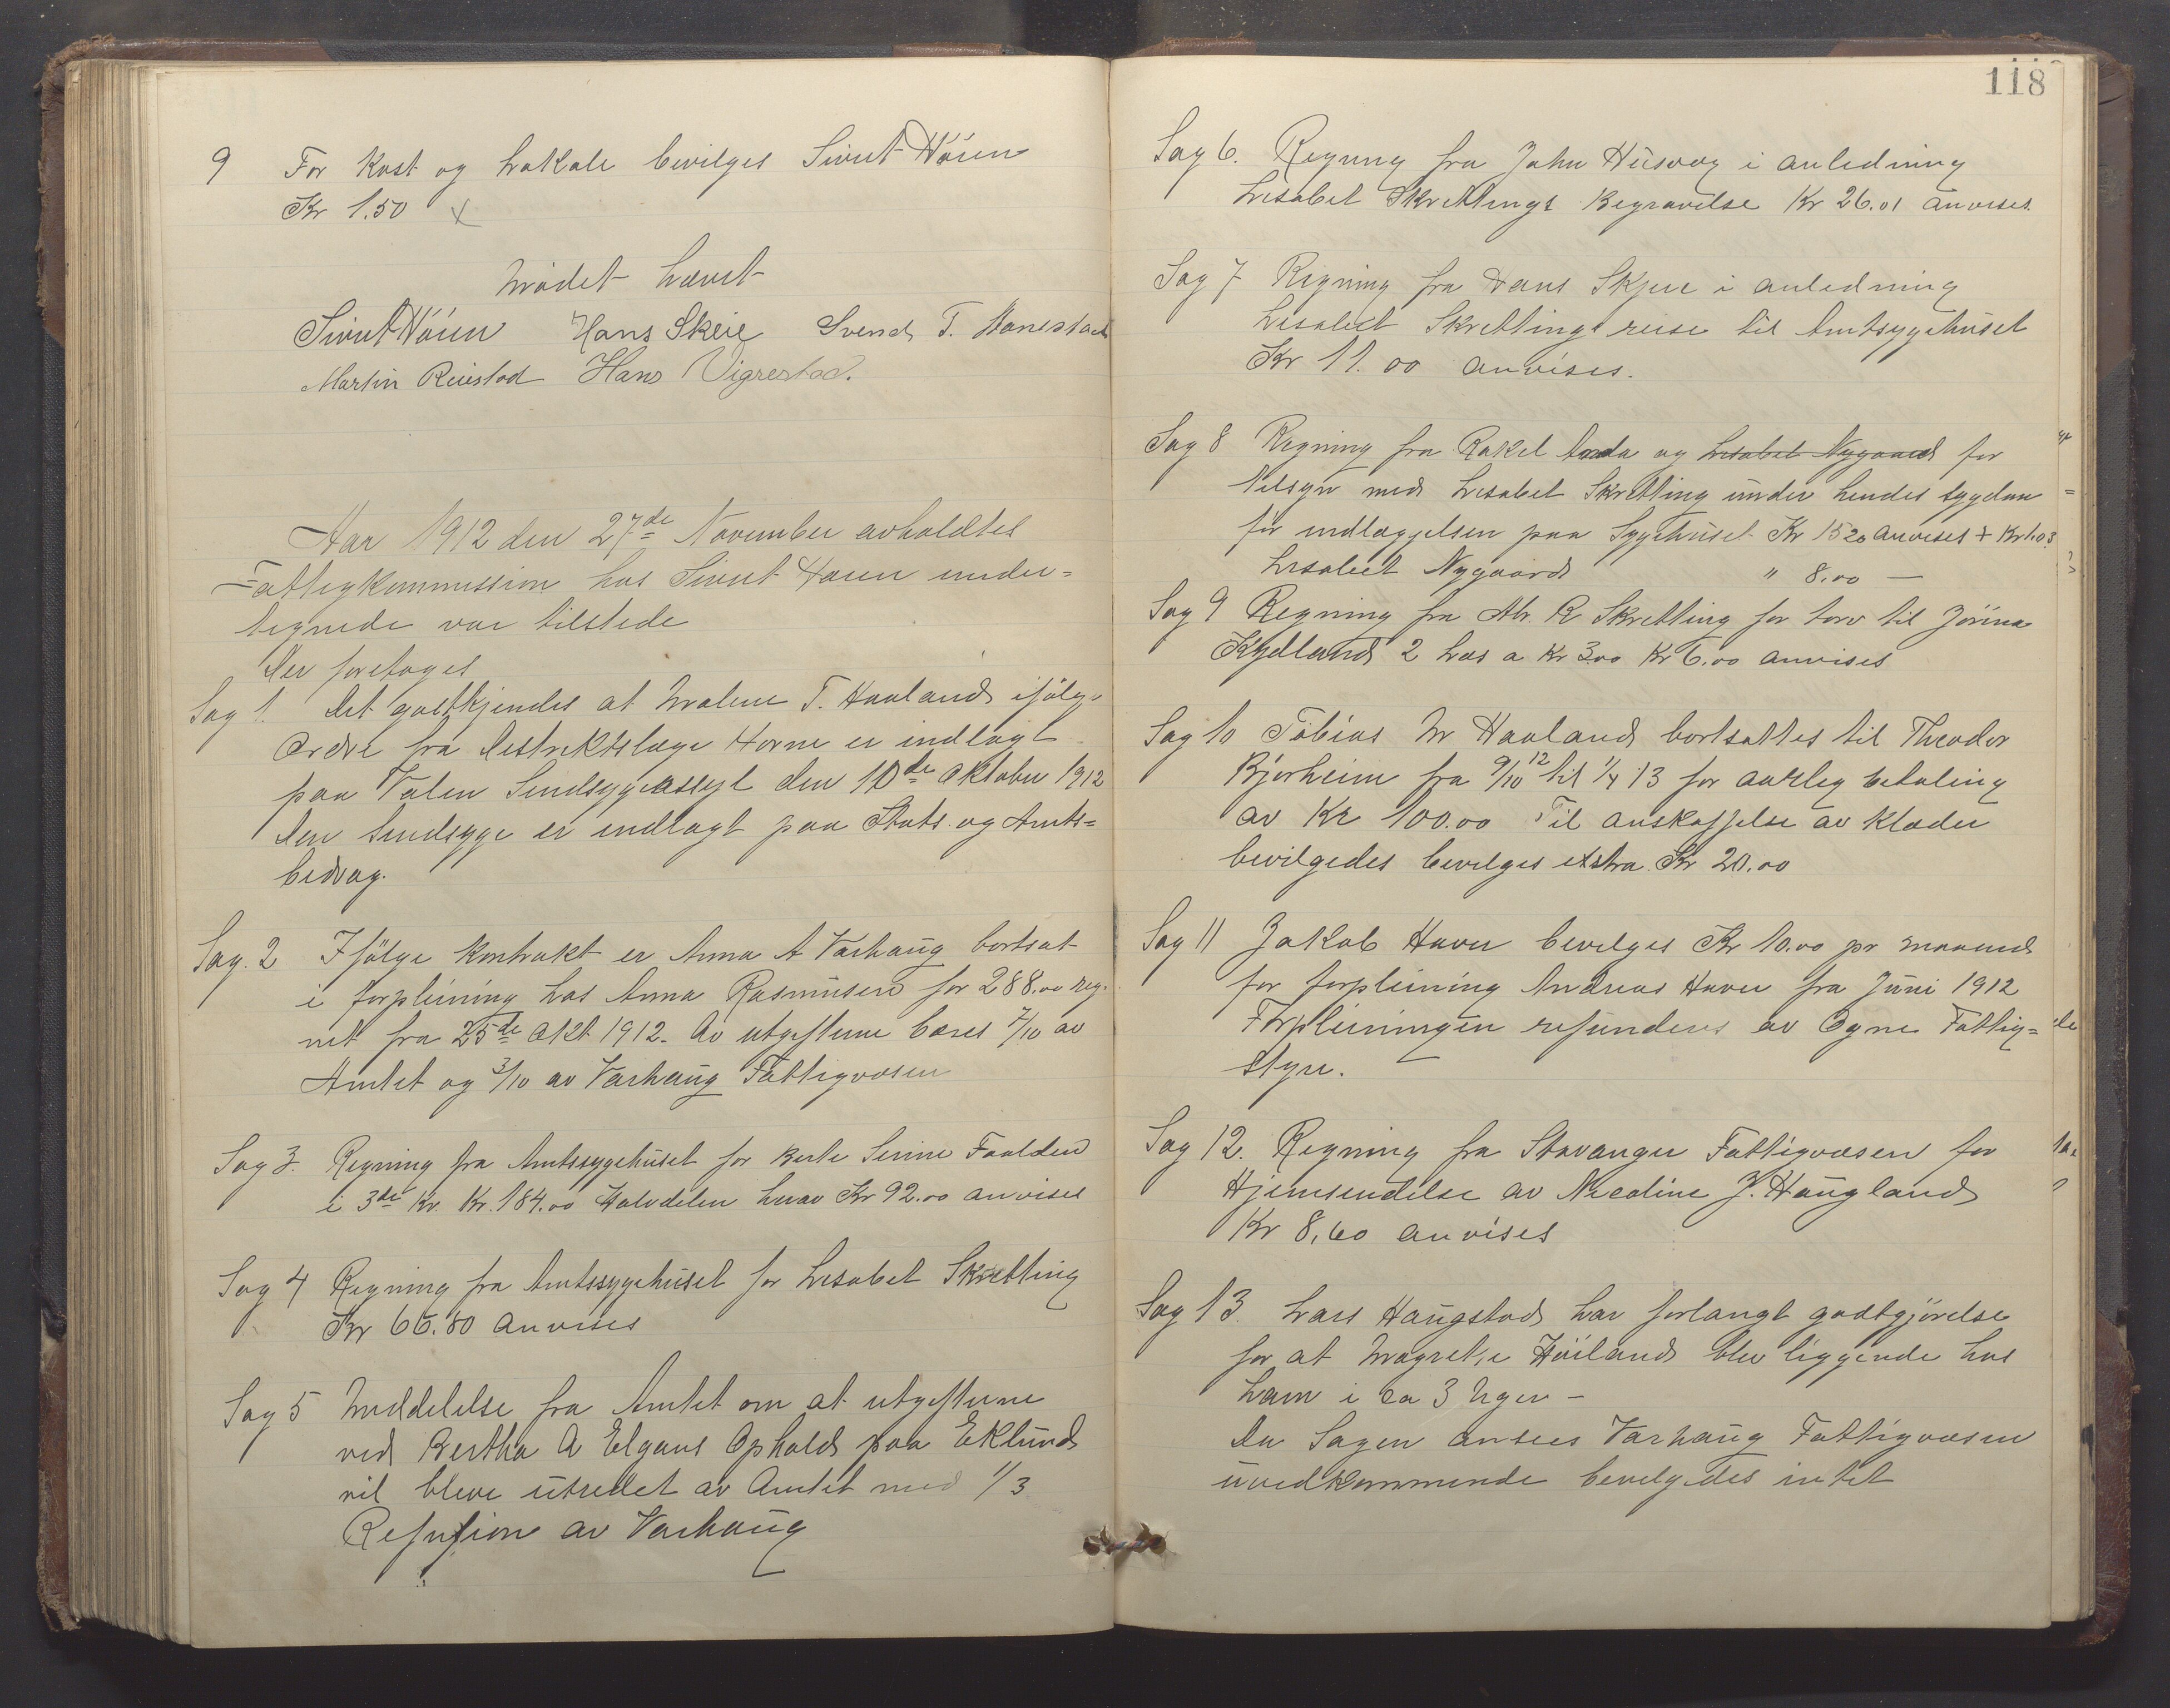 9 For Kost og Lokale bevilges Sivert Høien
Kr 1.50
Mødet hævet
Sivert Høien Hans Skeie Svend T. Hanestad
Martin Reiestad Hans Vigrestad.
Aar 1912 den 27de November avholdtes
Fattigkommission hos Sivert Høien under=
tegnede var tilstede
Der foretoges
Sag 1. Det godtkjendes at Malene T. Haaland ifølge
Ordre fra Destriktslæge Horne er indlagt
paa Valen Sindsygeassyl den 10de Oktober 1912
Den Sindsyge er indlagt paa Stats og Amts=
bedrag.
Sag. 2 Ifølge Kontrakt er Anna A Varhaug bortsat
i forpleining hos Anna Rasmusen for 288.00 reg.
net fra 25de Okt 1912. Av utgifterne bæres 7/10 av
Amtet og 3/10 av Varhaug Fattigvæsen
Sag 3. Regning fra Amtssygehuset for Berte Serine Foalden
i 3die Kv. Kr. 184.00 Halvdelen herav Kr 92.00 anvises
Sag 4 Regning fra Amtssygehuset for Lisabet Skretting
Kr 66.80 anvises
Sag 5 Meddelelse fra Amtet om at utgifterne
ved Bertha A Elgans Ophold paa Eklund
vil bleve utredet av Amtet med 1/3
Refusion av Varhaug
118
Sag 6. Regning fra John Husvæg i anledning
Lisabet Skrettings Begravelse Kr 26.01 anvises.
Sag 7 Regning fra Hans Skjeie i anledning
Lisabet Skrettings reise til Amtsygehuset
Kr 11.00 anvises.
Sag 8 Regning fra Rakel Anda og Lisabet Nygaard for
tilsyn med Lisabet Skretting under hendes sygdom
før indlæggelsen paa Sygehuset Kr 15 20 anvises +
Lisabeet Nygaard " 8.00 —
Sag 9 Regning fra Ab. R Skretting for torv til Jørina
Kydland 2 Læs a Kr 3.00 Kr 6.00 anvises
Sag 10 Tobias M Haaland bortsattes til Theodor
Bjorheim fra 9/10 12 til 1/4 13 for aarleg betaling
av Kr 100.00 Til anskaffelse av klæder
bevilgedes bevilges extra Kr 20.00
Sag 11 Jakob Haver bevilges Kr 10.00 pr maaned
for forpleining Andreas Haver fra Juni 1912
Forpleiningen refunderes av Ogne Fattig=
styre.
Sag 12. Regning fra Stavanger Fattigvæsen for
Hjemsendelse av Nicoline J. Haugland
Kr 8,60 anvises
Sag 13. Lars Haugstad har forlangt godtgjørelse
for at Magretie Høiland blev liggende hos
ham i ca 3 Uger —
Da Sagen ansees Varhaug Fattigvæsen
uvedkommende bevelgedes intet